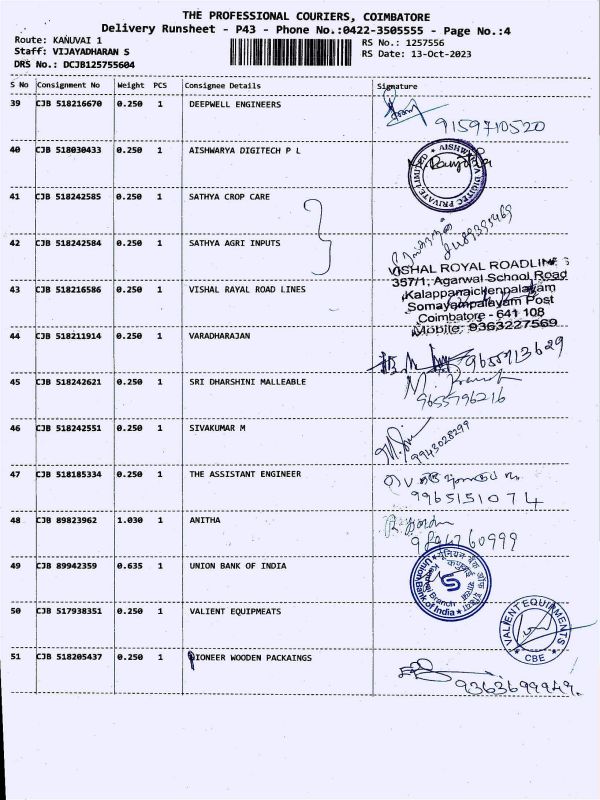 THE PROFESSIONAL COURIERS, COIMBATORE
Delivery Runsheet - P43 - Phone No.:0422-3505555 - Page No.:4
Route: KANUVAI 1
RS No.: 1257556
Staff: VIJAYADHARAN S
RS Date: 13-Oct-2023
DRS No.: DCJB125755604
S No Consignment No Weight PCS Consignee Details Signature
39 CJB 518216670 0.250 1 DEEPWELL ENGINEERS
9159710520
40 CJB 518030433 0.250 1 AISHWARYA DIGITECH P L
AISHWARYA DIGITEC PRIVATE LIMITED
41 CJB 518242585 0.250 1 SATHYA CROP CARE
42 CJB 518242584 0.250 1 SATHYA AGRI INPUTS
43 CJB 518216586 0.250 1 VISHAL RAYAL ROAD LINES
VISHAL ROYAL ROADLINES
357/1, Agarwal School Road
Kalappanaickenpalayam
Somayampalayam Post
Coimbatore - 641 108
Mobile: 9363227569
44 CJB 518211914 0.250 1 VARADHARAJAN
9655913629
45 CJB 518242621 0.250 1 SRI DHARSHINI MALLEABLE
9655796216
46 CJB 518242551 0.250 1 SIVAKUMAR M
9943028299
47 CJB 518185334 0.250 1 THE ASSISTANT ENGINEER
9965151074
48 CJB 89823962 1.030 1 ANITHA
9894760999
49 CJB 89942359 0.635 1 UNION BANK OF INDIA
यूनियन बैंक ऑफ इंडिया
Union Bank of India
50 CJB 517938351 0.250 1 VALIENT EQUIPMEATS
VALIENT EQUIPMENTS
CBE
51 CJB 518205437 0.250 1 PIONEER WOODEN PACKAINGS
9363699949